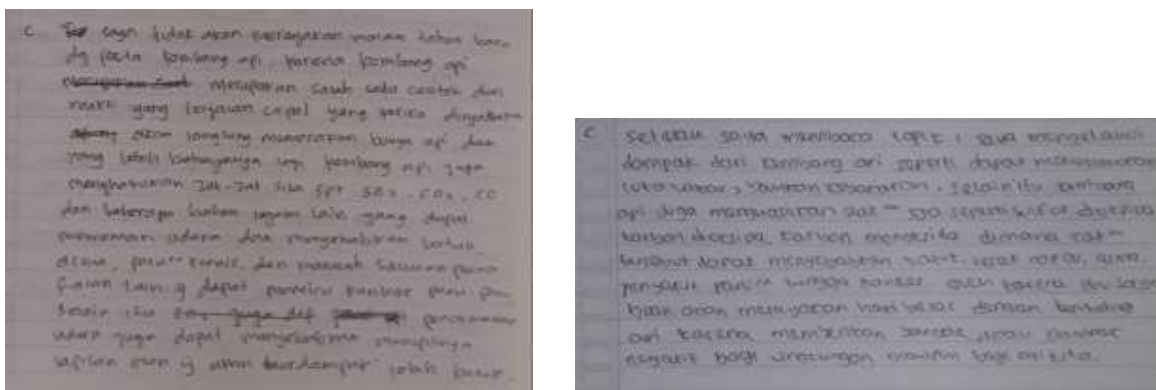 C saya tidak akan merayakan malam tahun baru
dg pesta kembang api karena kembang api
merupakan salah satu contoh dari
reaksi yang berjalan cepat yang ketika dinyalakan
akan langsung memercikan bunga api dan
yang lebih bahayanya lagi kembang api juga
menghasilkan zat-zat sisa spt SO2, CO2, CO
dan beberapa bahan logam lain yang dapat
mencemari udara dan mengakibatkan
dan masalah saluran
lain yg dapat memicu kanker paru
selain itu pencemaran
udara juga dapat menyebabkan menipisnya
lapisan ozon yg akan berdampak lebih
C setelah saya membaca saya mengetahui
dampak dari kembang api seperti dapat
luka bakar, bahkan kebakaran, selain itu kembang
api juga menghasilkan zat" sisa seperti sulfur dioksida
karbon dioksida, karbon monoksida dimana zat"
tersebut dapat menyebabkan sakit, sesak nafas, asma,
penyakit paru" hingga kanker oleh karena itu saya
tidak akan merayakan hari besar dengan kembang
api karena memberikan dampak
negatif bagi lingkungan maupun bagi diri kita.